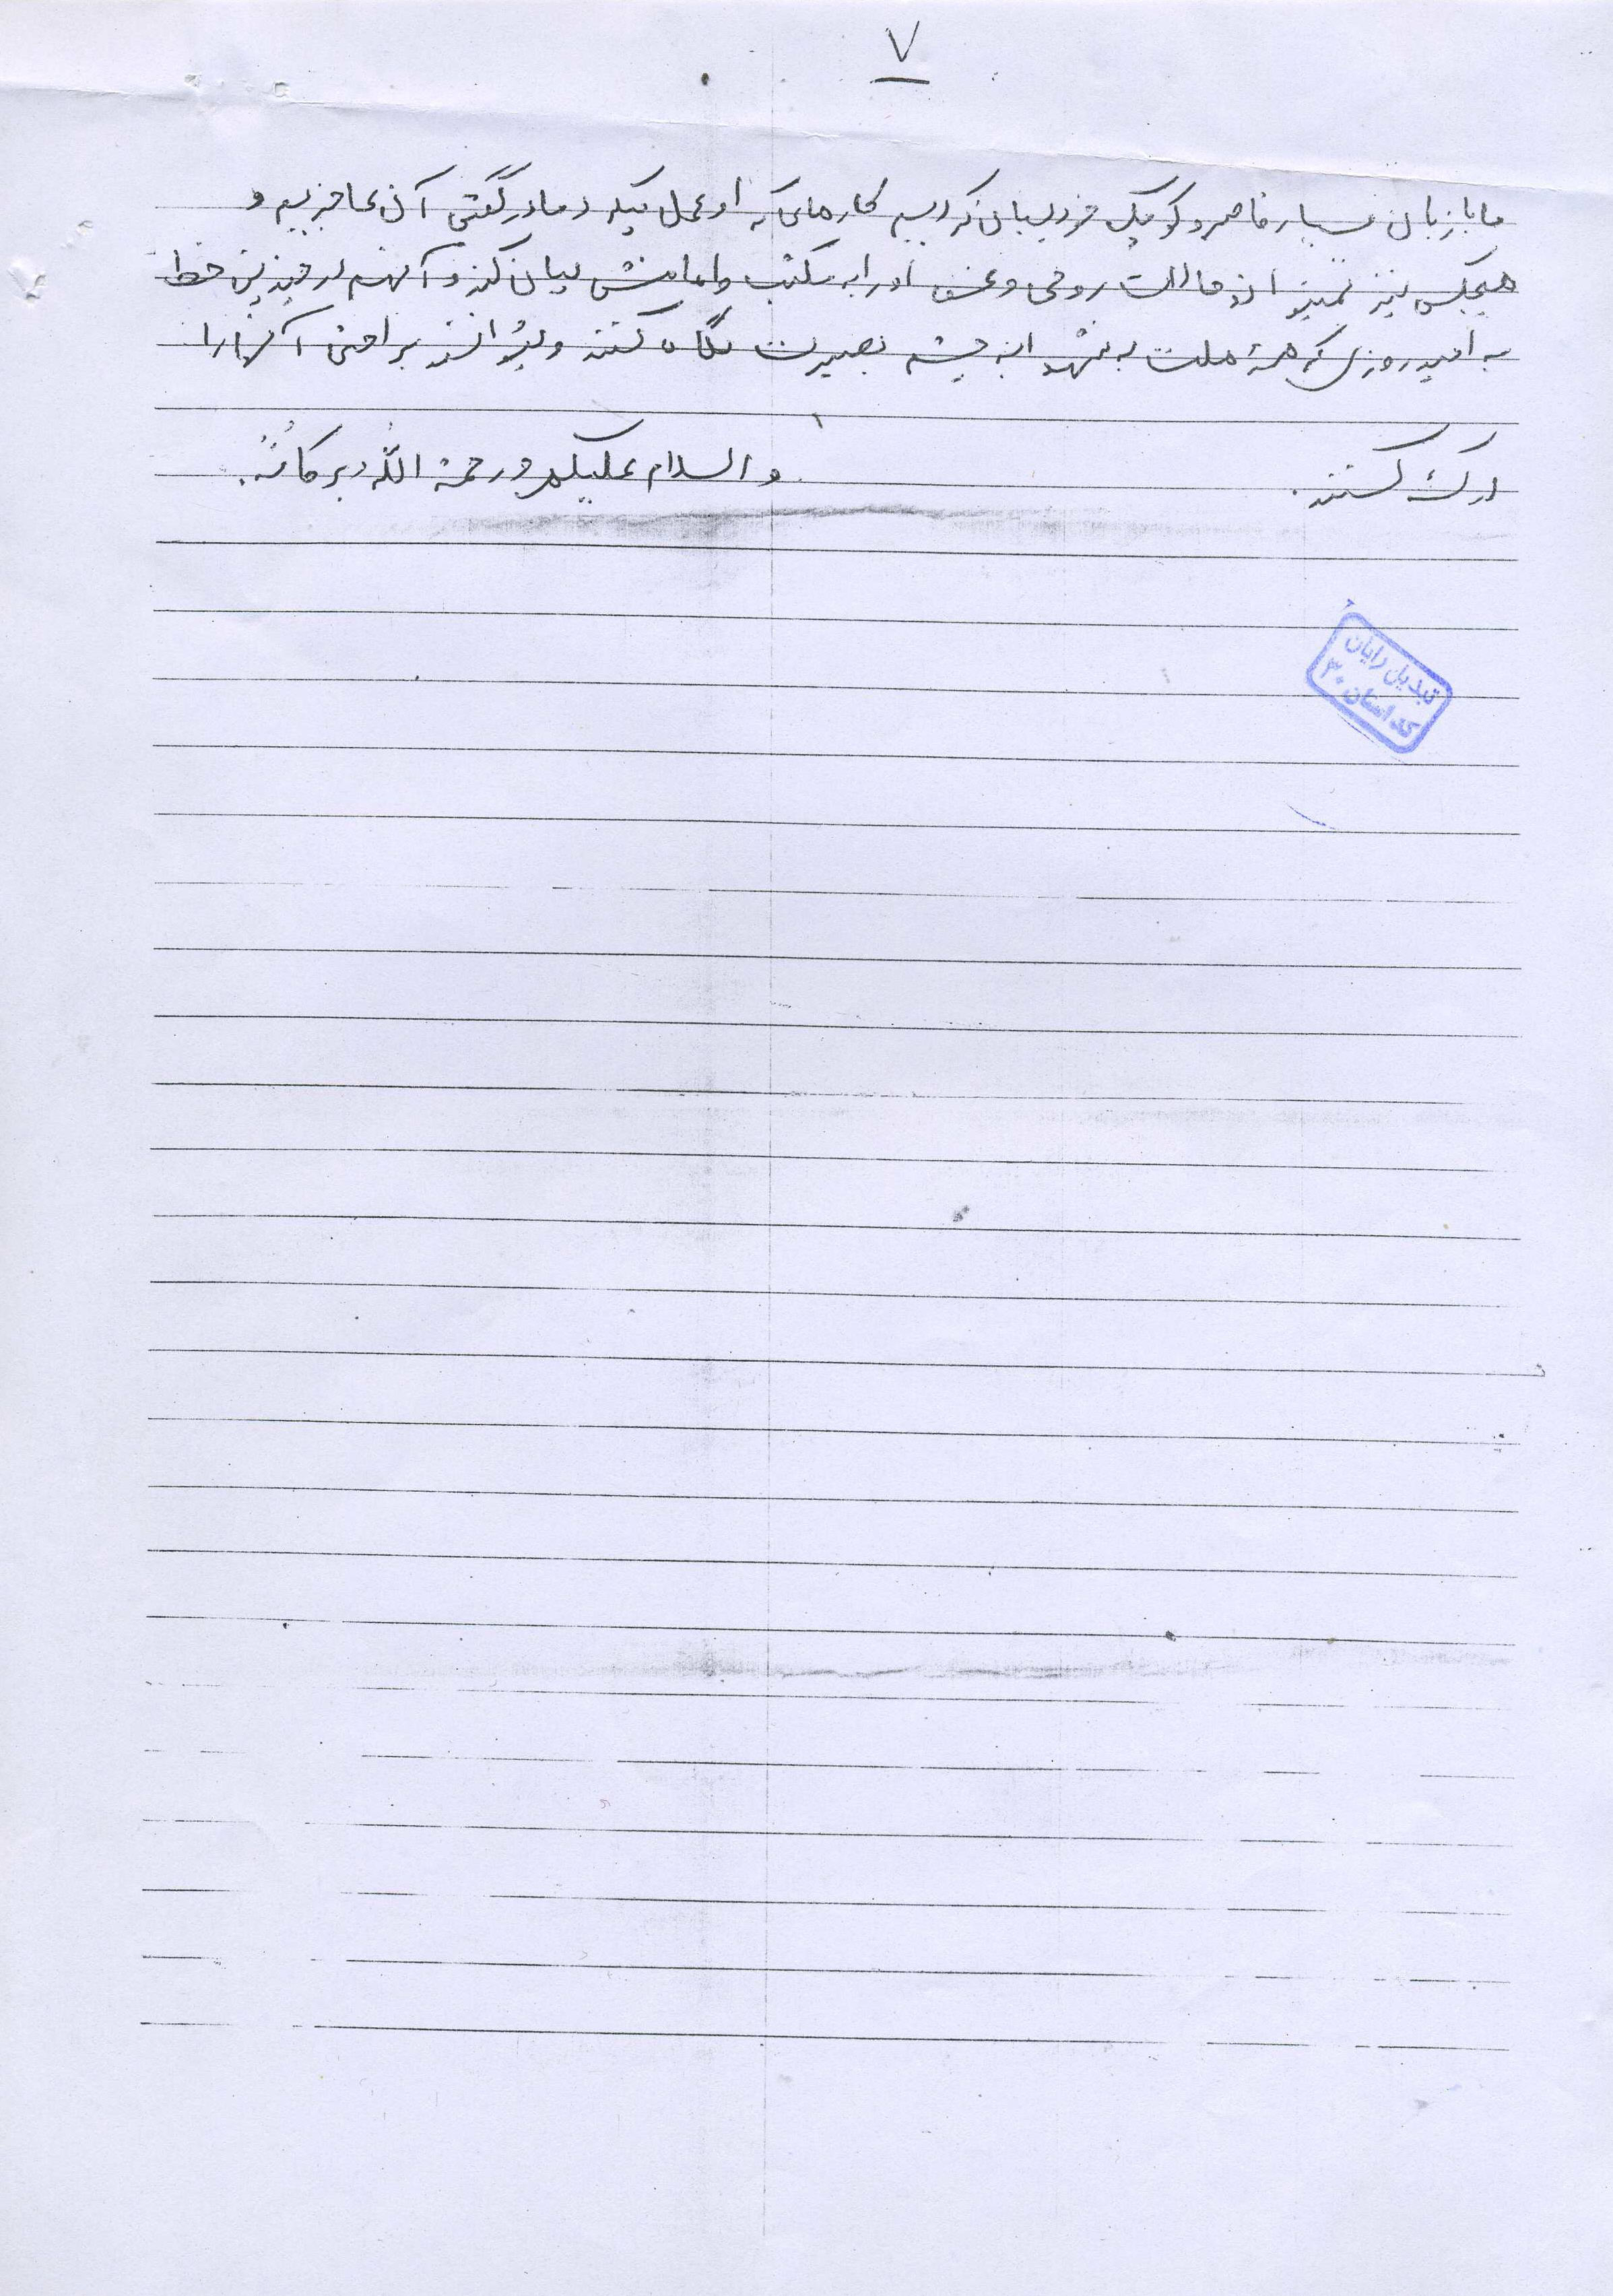 ۷
ما با زبان بسیار قاصر و کوچک خود بیان کردیم کارهای که او عمل میکرد ما در گفتن آن عاجزیم و
هیچکس نیز نمیتواند حالات روحی و عشق او را به مکتب و امامش بیان کند و آنهم در چندین خط
به امید روزی که همه ملت به شهدا به چشم بصیرت نگاه کنند و بتوانند براحتی آنها را
درک کنند.
والسلام علیکم و رحمة الله و برکاته.
تبدیل رایان
کد استان ۳۰